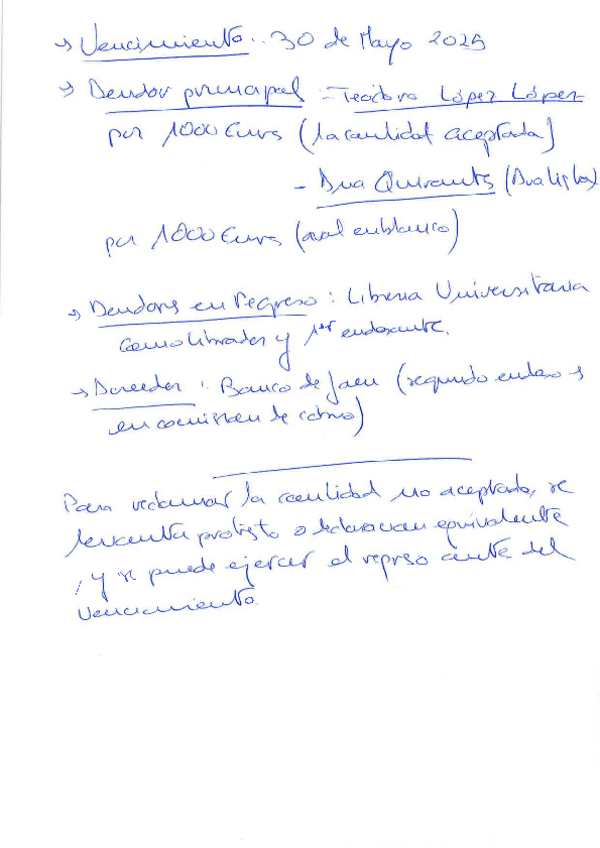 → Vencimiento: 30 de Mayo 2025
→ Deudor principal - Teodoro López López
por 1000 Euros (la cantidad aceptada)
- Ava Quirants (Avalista)
por 1000 Euros (aval en blanco)
→ Deudores en regreso: Libreria Universitaria
como librador y 1er endosante.
→ Acreedor: Banco de Jaen (segundo endoso
en comision de cobro)
Para reclamar la cantidad no aceptada, se
levanta protesto o declaracion equivalente
, y se puede ejercer el regreso antes del
vencimiento.